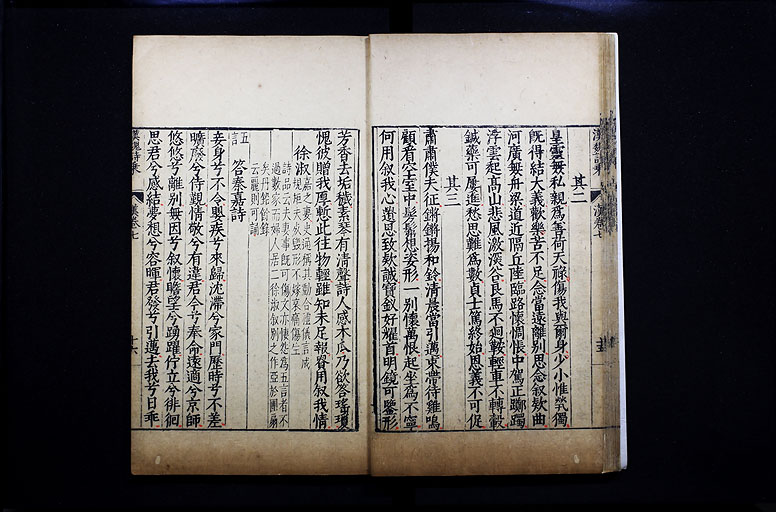 其二
皇靈無私親為善荷天祿傷我與爾身少小惟煢獨
旣得結大義歡樂苦不足念當遠離別思念叙款曲
河廣無舟梁道近隔丘陸臨路懷惆悵中駕正躑躅
浮雲起高山悲風激深谷良馬不迴鞍輕車不轉轂
鍼藥可屢進愁思難爲數貞士篤終始思義不可促
其三
肅肅僕夫征鏘鏘揚和鈴清晨當引邁束帶待雞鳴
顧看空室中髣髴想姿形一別懷萬恨起坐爲不寧
何用叙我心遺思致款誠寶釵好耀首明鏡可鑒形
芳香去垢穢素琴有清聲詩人感木瓜乃欲答瑤瓊
愧彼贈我厚慙此往物輕雖知未足報貴用叙我情
徐淑
詩品云夫妻事旣可傷文亦悽怨爲五言者不
過數家而婦人居二徐淑叙別之作亞於團扇
矣
云麗則可誦
五言
答秦嘉詩
妾身兮不令嬰疾兮來歸沈滯兮家門歷時兮不差
曠廢兮侍覲情敬兮有違君今兮奉命遠適兮京師
悠悠兮離別無因兮叙懷瞻望兮踴躍佇立兮徘徊
思君兮感結夢想兮容暉君發兮引邁去我兮日乖